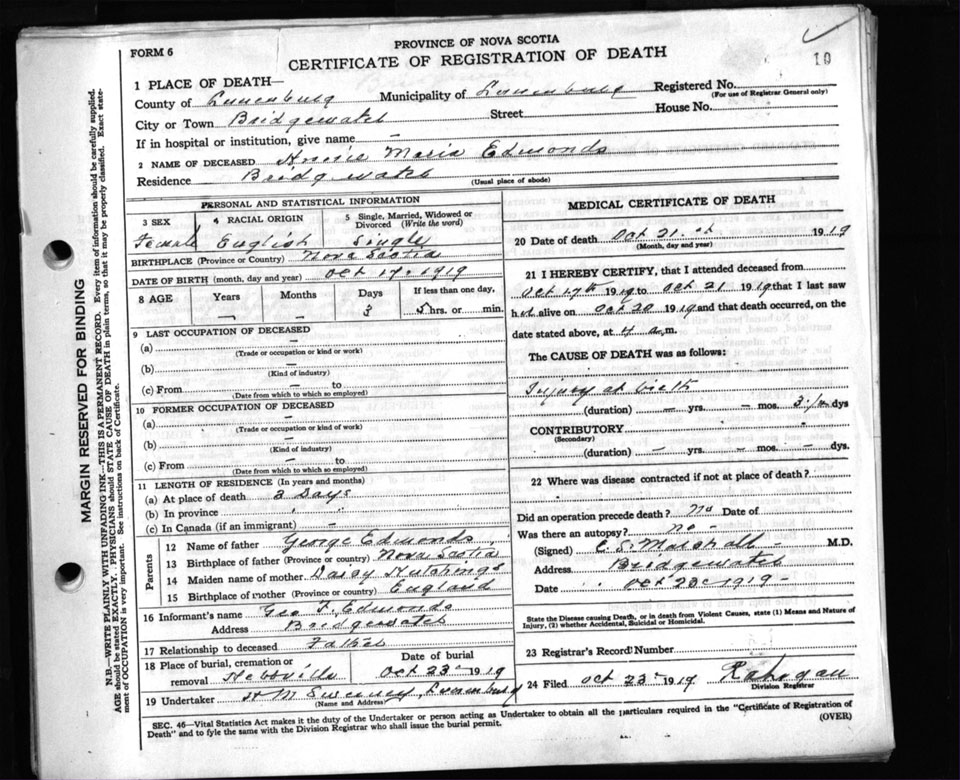 PROVINCE OF NOVA SCOTIA
FORM 6
CERTIFICATE OF REGISTRATION OF DEATH
10
1 PLACE OF DEATH—
Registered No.
(For use of Registrar General only)
County of Lunenburg Municipality of Lunenburg
City or Town Bridgewater Street House No.
If in hospital or institution, give name –
2 NAME OF DECEASED Annie Maria Edmonds
Residence Bridgewater
(Usual place of abode)
PERSONAL AND STATISTICAL INFORMATION
3 SEX 4 RACIAL ORIGIN 5 Single, Married, Widowed or Divorced (Write the word)
Female English Single
BIRTHPLACE (Province or Country) Nova Scotia
DATE OF BIRTH (month, day and year) Oct 17. 1919
8 AGE Years Months Days If less than one day,
– – 3 5 hrs. or min.
9 LAST OCCUPATION OF DECEASED
(a) –
(Trade or occupation or kind or work)
(b) –
(Kind of industry)
(c) From – to
(Date from which to which so employed)
10 FORMER OCCUPATION OF DECEASED
(a) –
(Trade or occupation or kind of work)
(b) –
(Kind of industry)
(c) From – to
(Date from which to which so employed)
11 LENGTH OF RESIDENCE (In years and months)
(a) At place of death 3 Days
(b) In province " "
(c) In Canada (if an immigrant) –
Parents
12 Name of father George Edmonds
13 Birthplace of father (Province or country) Nova Scotia
14 Maiden name of mother Daisy Hutchings
15 Birthplace of mother (Province or country) England
16 Informant's name Geo F. Edmonds
Address Bridgewater
17 Relationship to deceased Father
18 Place of burial, cremation or removal Hebbville
Date of burial Oct 23 1919
19 Undertaker H M Sweeney, Lunenburg
(Name and Address)
MEDICAL CERTIFICATE OF DEATH
20 Date of death Oct 21.st 1919
(Month, day and year)
21 I HEREBY CERTIFY, that I attended deceased from
Oct 17th 1919 to Oct 21 1919 that I last saw
h er alive on Oct 20 1919 and that death occurred, on the
date stated above, at 4 a.m.
The CAUSE OF DEATH was as follows:
Injury at birth
(duration) – yrs. – mos. 3 ½ dys
CONTRIBUTORY
(Secondary)
(duration) – yrs. – mos. – dys.
22 Where was disease contracted if not at place of death?
Did an operation precede death? No Date of
Was there an autopsy? No –
(Signed) C. S. Marshall – M.D.
Address Bridgewater
Date Oct 23 1919 –
State the Disease causing Death, or in death from Violent Causes, state (1) Means and Nature of
Injury, (2) whether Accidental, Suicidal or Homicidal.
23 Registrar's Record Number
24 Filed Oct 23 1919
Division Registrar
SEC. 46—Vital Statistics Act makes it the duty of the Undertaker or person acting as Undertaker to obtain all the particulars required in the "Certificate of Registration of
Death" and to fyle the same with the Division Registrar who shall issue the burial permit.
(OVER)
MARGIN RESERVED FOR BINDING
N.B.—WRITE PLAINLY WITH UNFADING INK—THIS IS A PERMANENT RECORD. Every item of information should be carefully supplied.
AGE should be stated EXACTLY. PHYSICIANS should STATE CAUSE OF DEATH in plain terms, so that it may be properly classified. Exact state-
ment of OCCUPATION is very important. See instructions on back of Certificate.